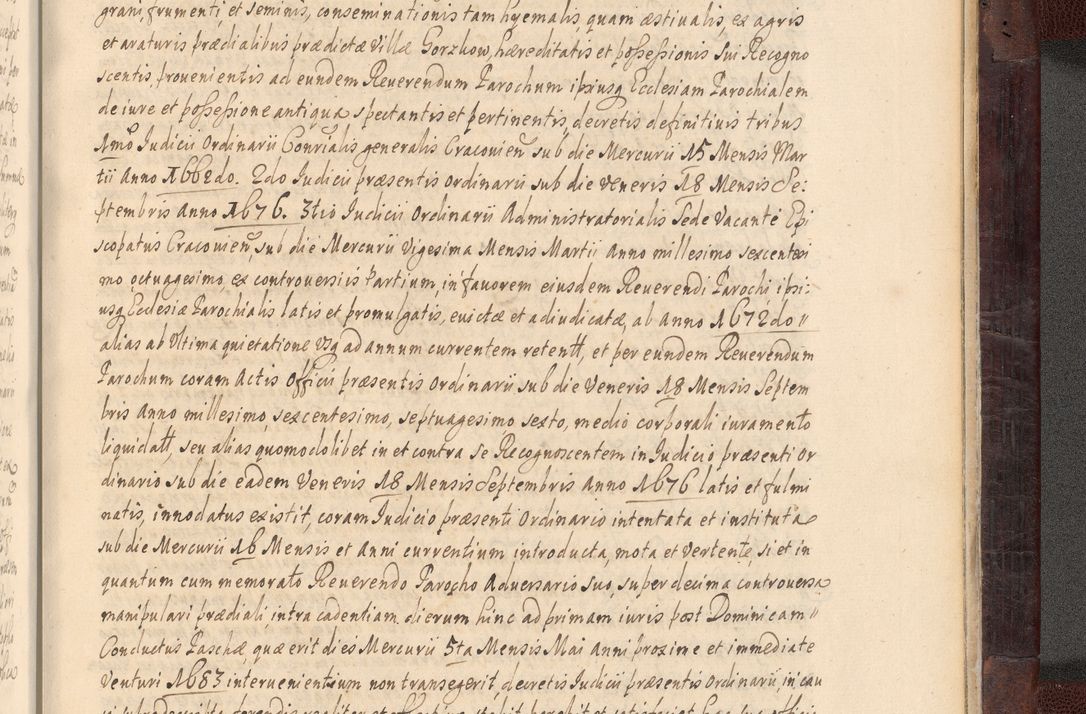 grani, frumenti, et seminis, conseminationis tam hyemalis, quam æstiualis, ex agris
et araturis prædialibus prædictæ Villæ Gorzkow, hæreditatis et possessionis sui Recogno
scentis, prouenientis ad eundem Reuerendum Parochum ipsiusq Ecclesiam Parochialem
de iure et possessione antiqua spectantis et pertinentis, decretis definitiuis tribus
1mo Judicii Ordinarii Conrialis generalis Cracouien sub die Mercurii 15 Mensis Mar
tii Anno 1662do. 2do Judicii præsentis Ordinarii sub die Veneris 18 Mensis Se:
ptembris Anno 1676. 3tio Judicii Ordinarii Administratorialis Sede Vacante Epi
scopatus Cracouien, sub die Mercurii Vigesima Mensis Martii Anno millesimo sexcentesi
mo octuagesimo, ex controuersiis Partium, in fauorem eiusdem Reuerendi Parochi ipsi:
usq Ecclesiæ Parochialis latis et promulgatis, euictæ et adiudicatæ, ab Anno 1672do
alias ab Vltima quietatione Vsq ad annum currentem retent, et per eundem Reuerendum
Parochum coram Actis Officii præsentis Ordinarii sub die Veneris 18 Mensis Septem
bris Anno millesimo, sexcentesimo, septuagesimo, sexto, medio corporali iuramento
liquidat, seu alias quomodolibet in et contra se Recognoscentem in Judicio præsenti Or
dinario sub die eadem Veneris 18 Mensis Septembris Anno 1676 latis et fulmi
natis, innodatus existit, coram Judicio præsenti Ordinario intentata et instituta
sub die Mercurii 16 Mensis et Anni currentium introducta, mota et Vertente, si et in
quantum cum memorato Reuerendo Parocho Aduersario suo, super decima controuersa
manipulari prædiali, intra cadentiam dierum hinc ad primam iuris post Dominicam
Conductus Paschæ, quæ erit dies Mercurii 5ta Mensis Mai anni proxime et immediate
Venturi 1683 interuenientium non transegerit, decretis Judicii præsentis Ordinarii, in cau